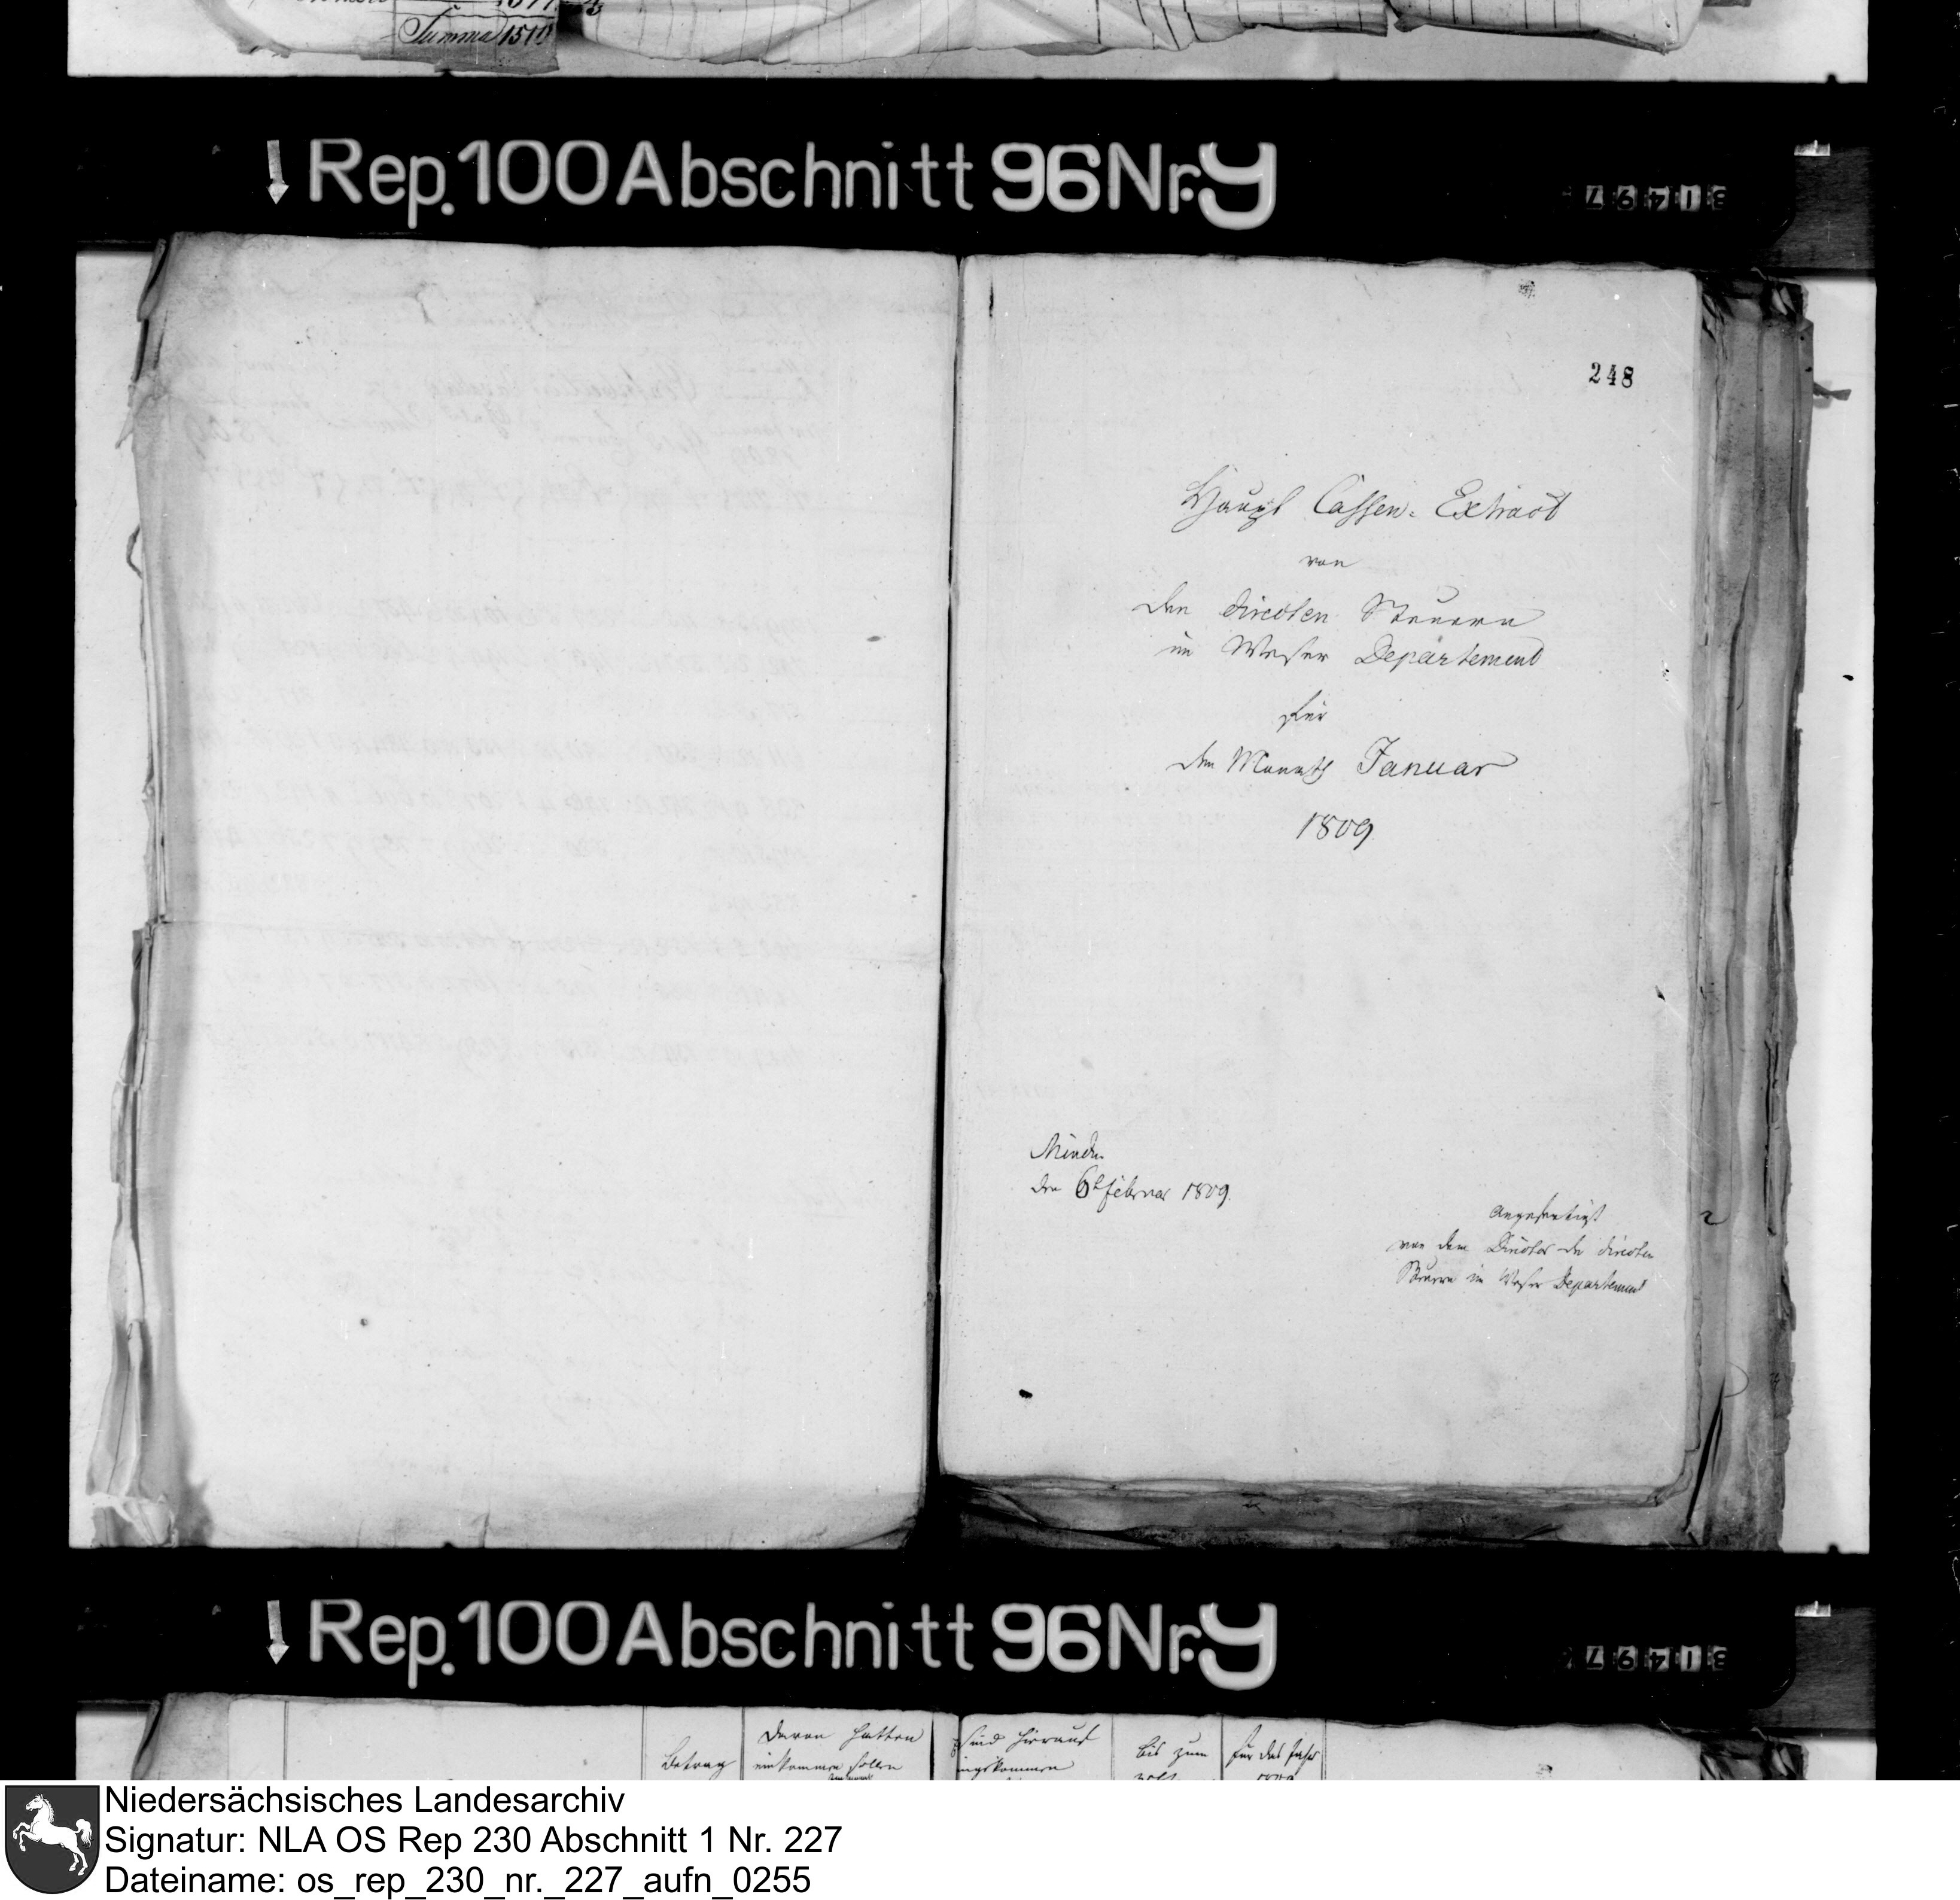 Summa 1519
Rep. 100 Abschnitt 96 Nr. 9
31497
248
Haupt Cassen-Extract
von
den directen Steuern
im Weser Departement
für
den Monath Januar
1809
Minden
den 6t Februar 1809.
Angefertigt
von dem Director der directen
Steuern im Weser Departement
Rep. 100 Abschnitt 96 Nr. 9
31497
Betrag
Davon hatten
einkommen sollen
sind hierauf
eingekommen
bis zum
für das Jahr
Niedersächsisches Landesarchiv
Signatur: NLA OS Rep 230 Abschnitt 1 Nr. 227
Dateiname: os_rep_230_nr._227_aufn_0255